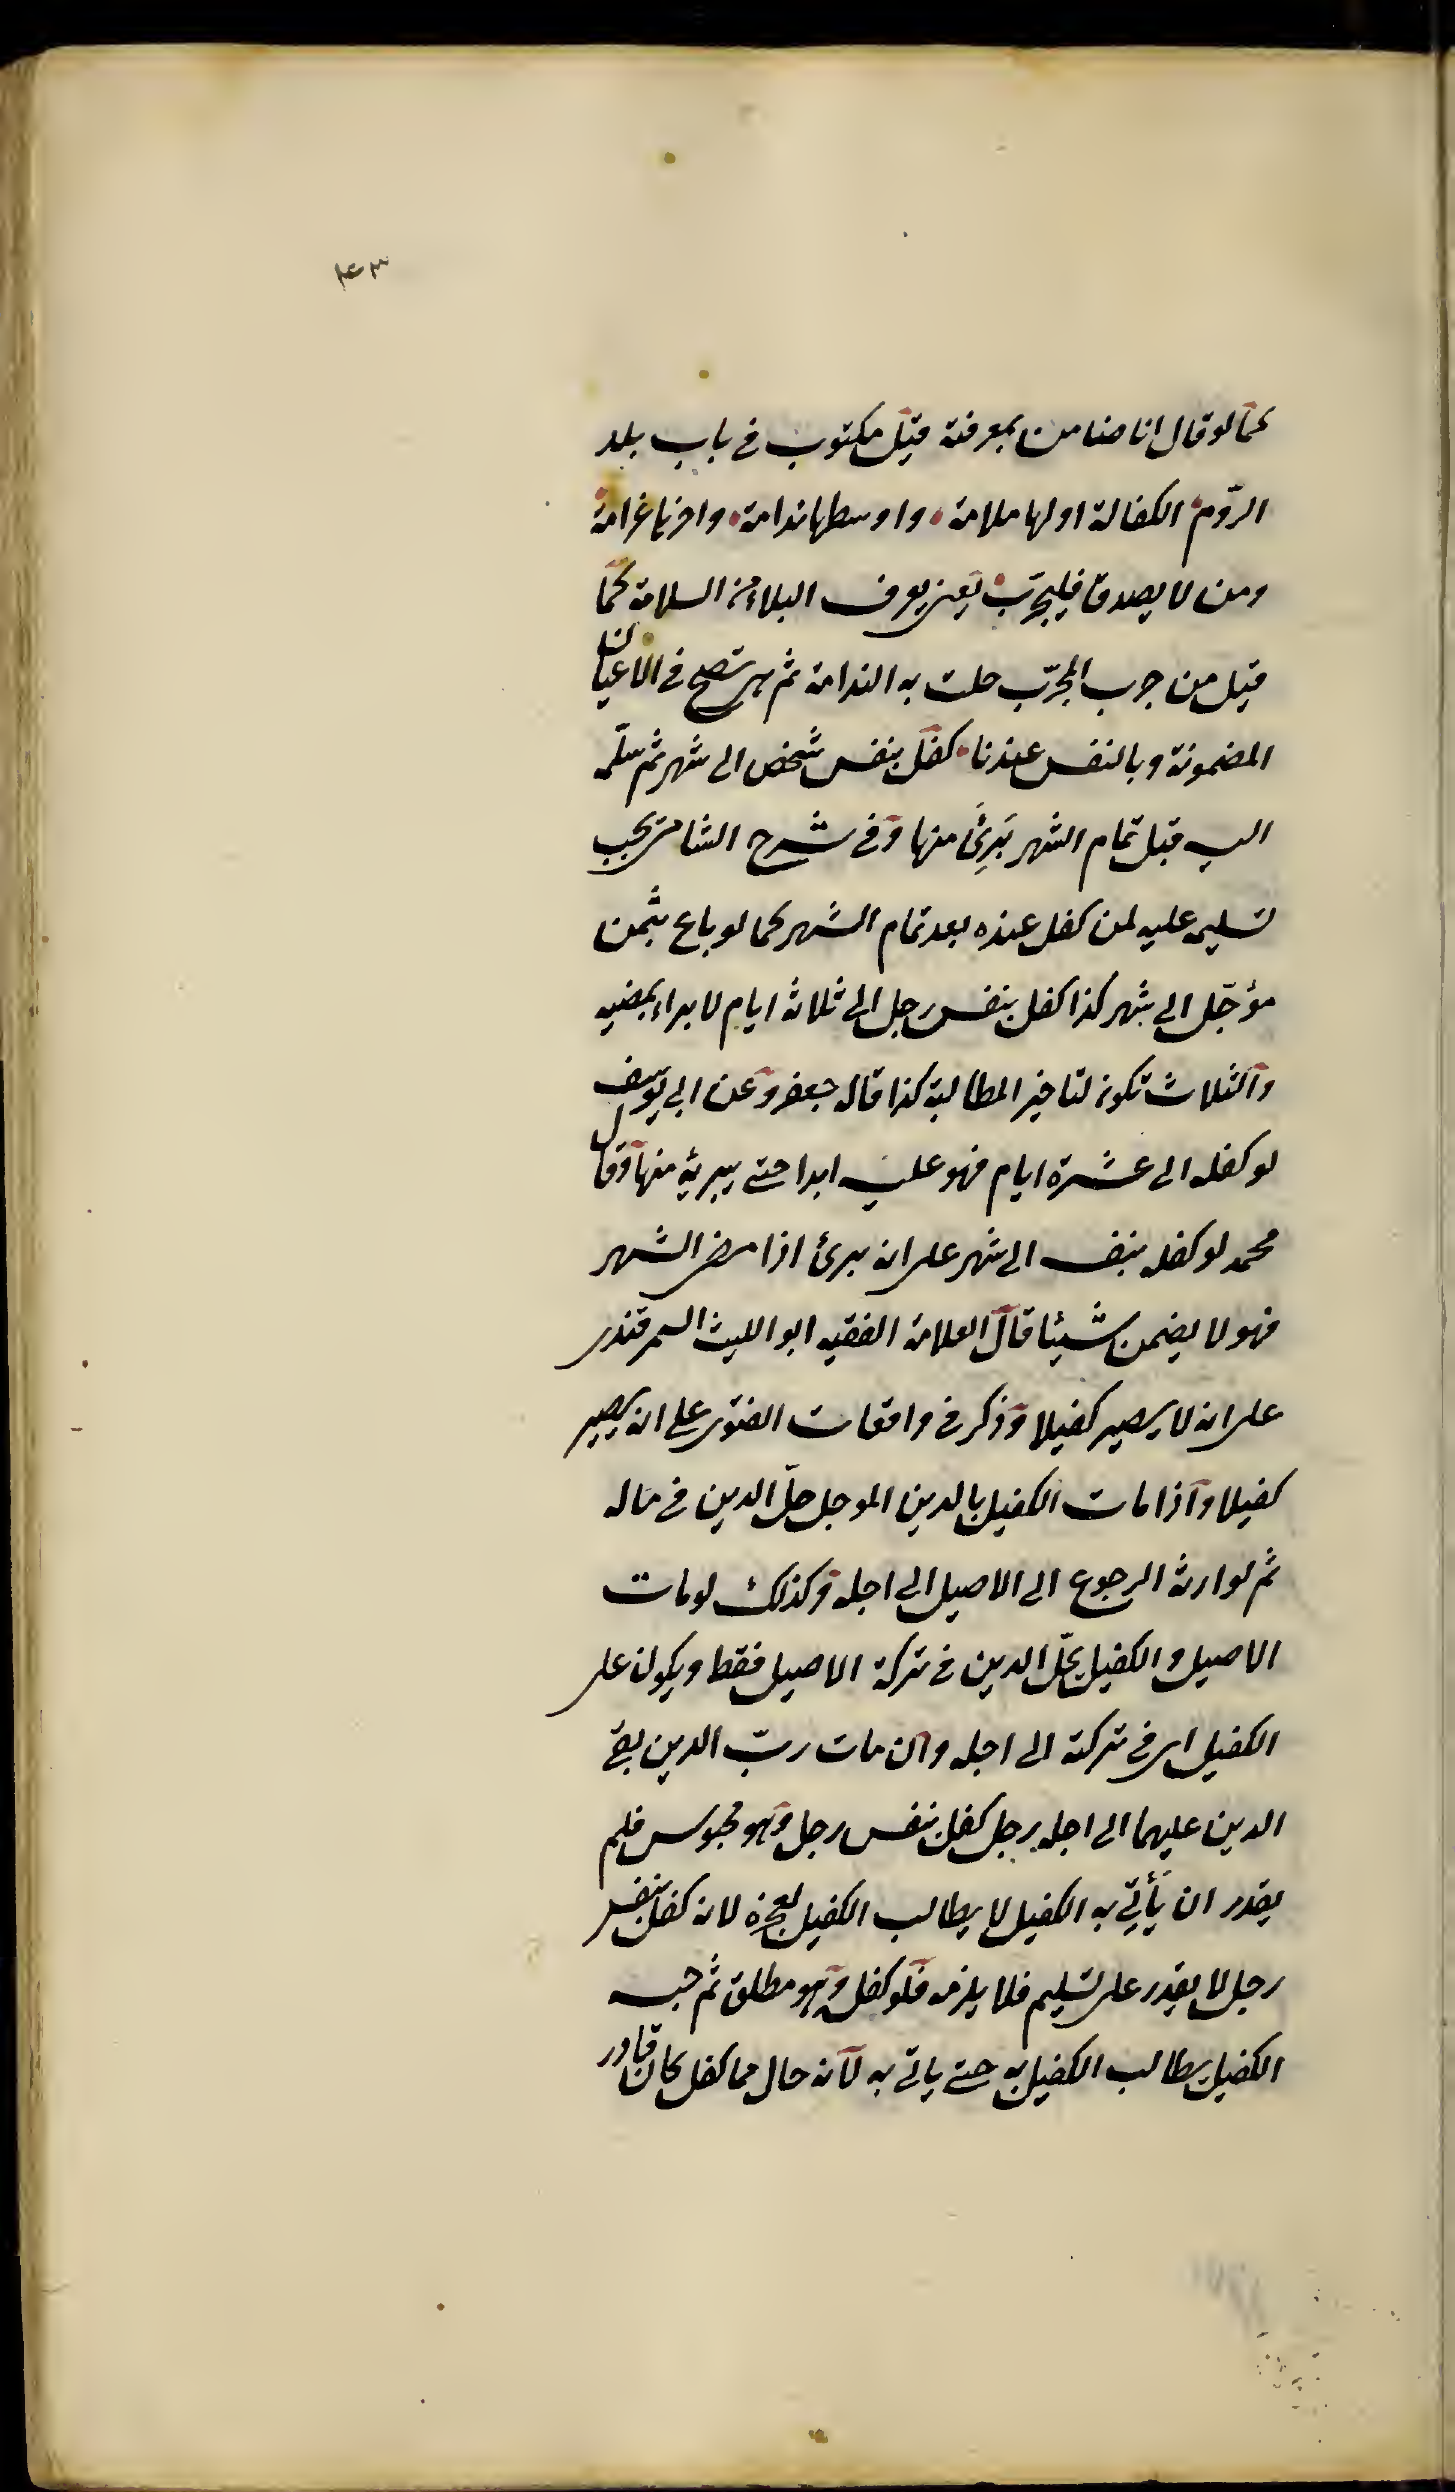 ٤٣
كما لو قال انا ضامن بمعرفته قيل مكتوب في باب بلد
الرّوم الكفالة اولها ملامة واوسطها ندامة واخرها غرامة
ومن لا يصدق فليجرّب يعني يعرف البلاء من السلامة كما
قيل من جرب المجرّب حلت به الندامة ثم هي تصح في الاعيان
المضمونة وبالنفس عندنا كفل بنفس شخص الى شهر ثم سلّمه
اليه قبل تمام الشهر بَرِئَ منها وفي شرح الشامي يجب
تسليمه عليه لمن كفل عنده بعد تمام الشهر كما لو باع بثمن
مؤجّل الى شهر كذا كفل بنفس رجل الى ثلاثة ايام لا يبراء بمضيه
والثلاث تكون لتاخير المطالبة كذا قاله جعفر وعن ابي يوسف
لو كفله الى عشرة ايام فهو عليه ابدا حتى يبريه منها وقال
محمد لو كفله بنفسه الى شهر على انه برئ اذا مضى الشهر
فهو لا يضمن شيئا قال العلامة الفقيه ابو الليث السمرقندى
على انه لا يصير كفيلا وذكر في واقعات الفتوى على انه يصير
كفيلا واذا مات الكفيل بالدين الموجل حلّ الدين في ماله
ثم لوارثه الرجوع الى الاصيل الى اجله وكذلك لو مات
الاصيل والكفيل يحلّ الدين في تركة الاصيل فقط ويكون على
الكفيل اى في تركته الى اجله وان مات ربّ الدين بقى
الدين عليهما الى اجله رجل كفل بنفس رجل وهو محبوس فلم
يقدر ان يَأتي به الكفيل لا يطالب الكفيل لعجزه لانه كفل بنفس
رجل لا يقدر على تسليم فلا يلزمه فلو كفل وهو مطلق ثم حبسه
الكفيل يطالب الكفيل به حتى ياتي به لانه حال ما كفل كان قادر